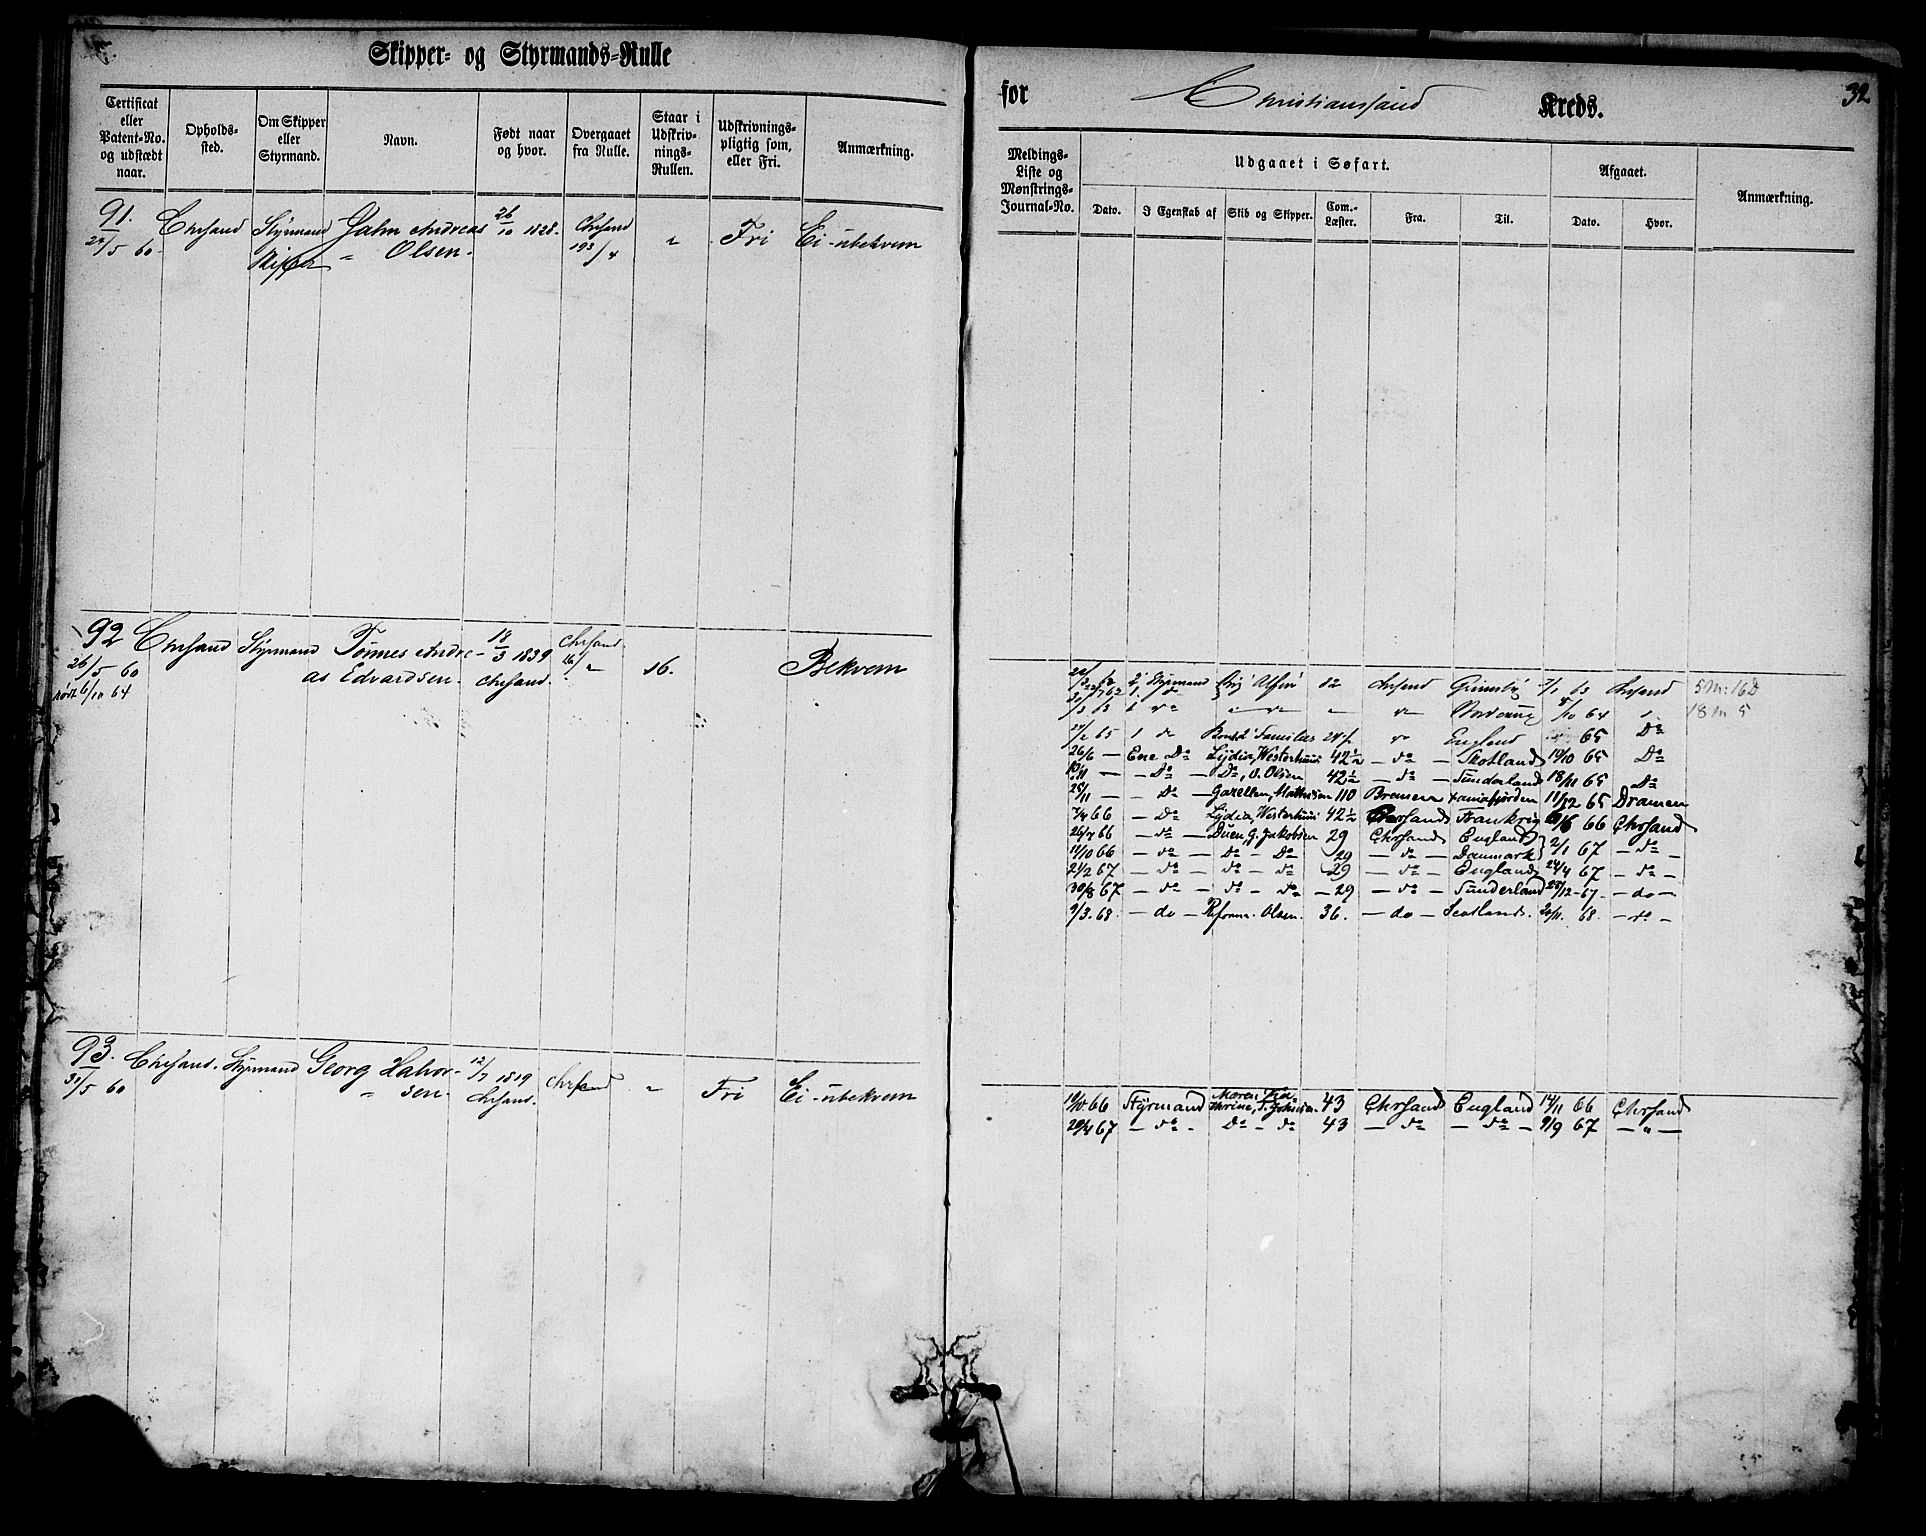 Skipper- og Styrmands-Rulle
Certificat eller Patent-No. og udstædt naar.
Opholds-sted.
Om Skipper eller Styrmand.
Navn.
Født naar og hvor.
Overgaaet fra Rulle.
Staar i Udskriv-nings-Rullen.
Udskrivnings-pligtig som, eller Fri.
Anmærkning.
91. Chrsand Styrmand Jahn Andreas 26/10 1828. Chrsand " Fri Ei-ubekvem
/5 60 Skipper " Olsen. 193/4
92 Chrsand Styrmand Tønnes Andre- 18/3 1839 Chrsand 16. Bekvem
26/5 60 as Edvardsen. Chrsand. 16/"
6/10 64
93. Chrsand. Styrmand Georg Halvor- 12/7 1819 Chrsand " Fri Ei-ubekvem
31/5 60 " sen. Chrsand.
for Christianssand Kreds. 32
Meldings-Liste og Mønstrings-Journal-No.
Udgaaet i Søfart.
Afgaaet.
Anmærkning.
Dato.
I Egenskab af
Skib og Skipper.
Com.-Læster.
Fra.
Til.
Dato.
Hvor.
2 Styrmand Brig Alfen 82 Chrsand Grimsby 7/1 63 Chrsand 5 M: 16 D
/3 63 /10 64 18 M 5
/2 65 1 do Familien do England 65 Do
26/6 — Ene Do Lydia, Westerhuus 42 1/2 — do — Skotland 19/10 65 Do
/11 — — Do — Do, O. Olsen 42 1/2 — do — Sunderland 18/11 65 Do
25/11 — — Do — Gazellen, Mathisen 110 Bremen Xaniafjorden 11/12 65 Dramen
7/4 66 — Do — Lydia, Westerhuus 42 1/2 Chrsand Frankrig /6 66 Chrsand
26/7 66 — do — Duen, G. Jakobsen 29 Chrsand England } 2/1 67 — do —
11/10 66 — do — Do — Do 29 — do — Danmark
21/2 67 — do — do — do — 29 — do — England 24/4 67 — do —
30/8 67 — do — do — do — 29 — do — Sunderland 28/12 - 67. — do —
9/3. 68. — do — Olsen. 36. — do — Scotland. 20/11. 68. — do —
19/10 66 Styrmand Maren Ka-
thrine, T. Johnsen 43 Chrsand England 14/11 66 Chrsand
29/4 67 — do — Do — do 43 — do — do — 9/9 67 — " —